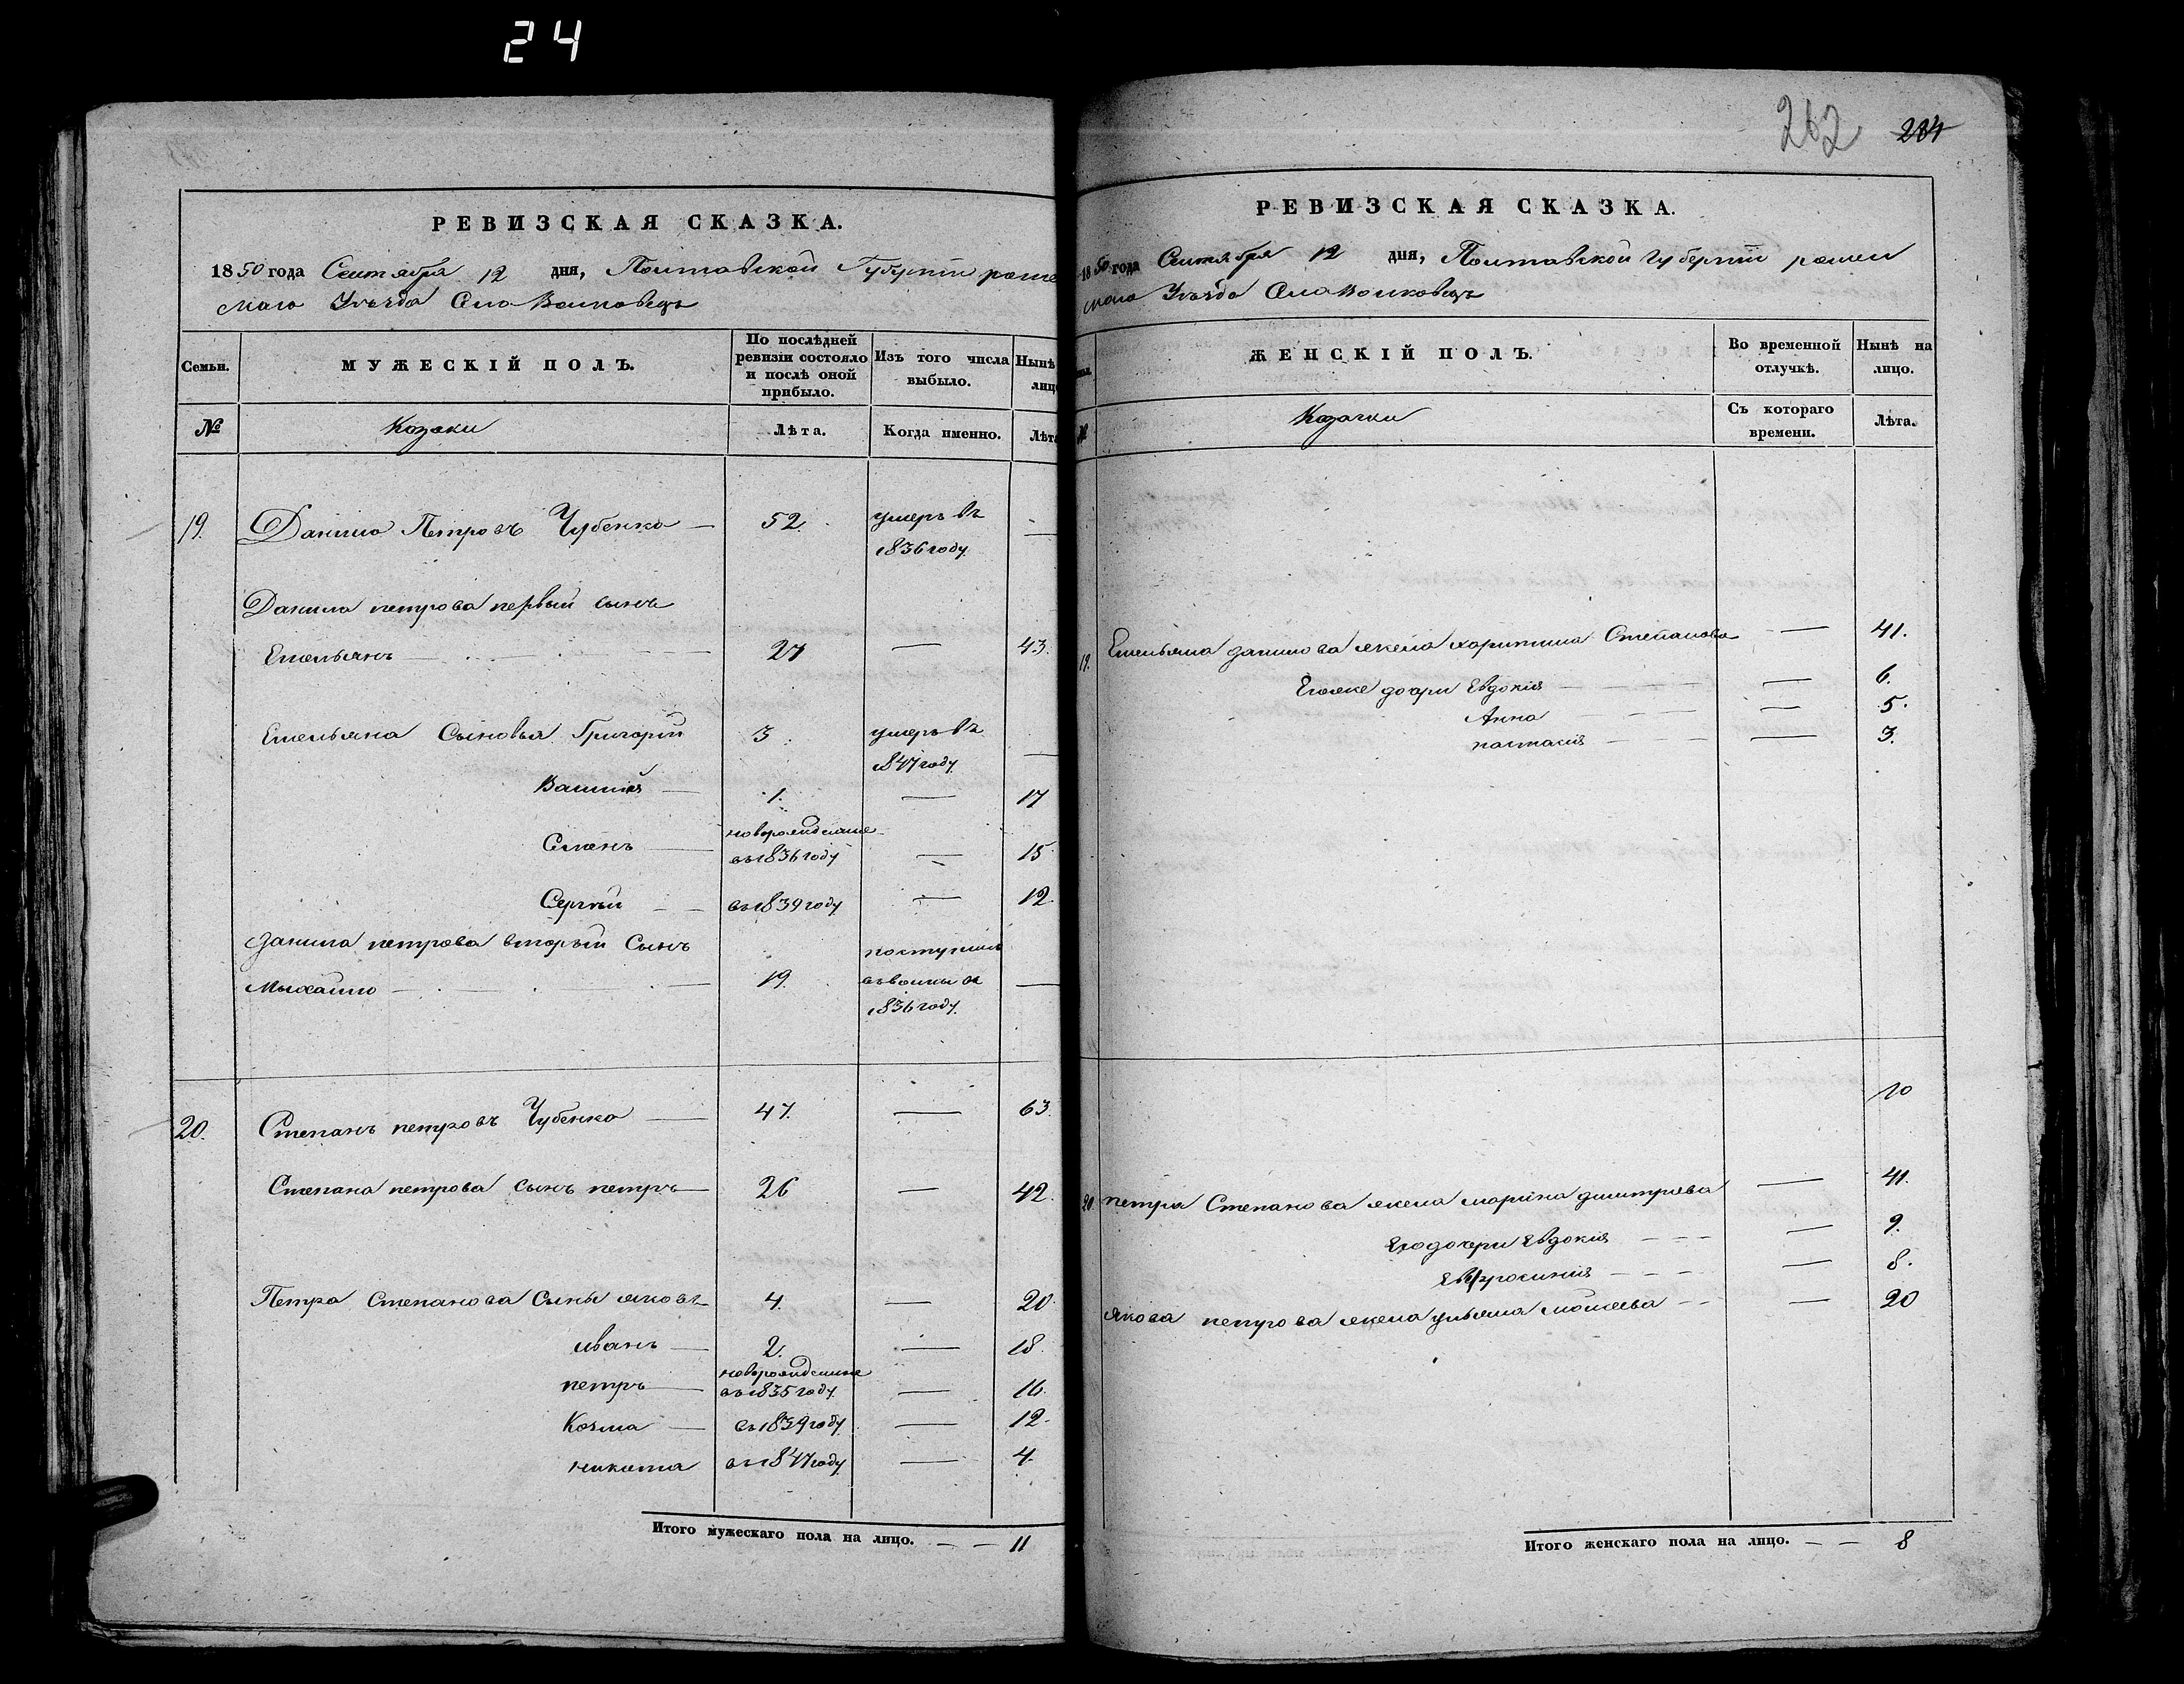 24
РЕВИЗСКАЯ СКАЗКА.
1850 года Сентября 12 дня, Полтавской Губернiи роме
скаго Уѣзда Села Волковецъ
Семьи. МУЖЕСКІЙ ПОЛЪ. По послѣдней ревизіи состояло и послѣ оной прибыло. Изъ того числа выбыло. Нынѣ лицо
№ Козаки Лѣта. Когда именно. Лѣта
19. Данило Петровъ Чубенко — 52. умеръ въ —
1836 году.
Данила петрова первый сынъ
Емельянъ — 27 — 43.
Емельяна Сыновья Григорій 3. умеръ въ —
1847 году.
Василій — 1. — 17
Семенъ — новорожденные
въ 1836 году — 15
Сергѣй — въ 1839 году — 12.
Данила петрова вторый Сынъ поступилъ
Михайло — 19. —
1836 году.
20. Степанъ петровъ Чубенко — 47. — 63.
Степана петрова сынъ петръ — 26 — 42.
Петра Степанова Сыны яковъ — 4. — 20.
иванъ — 2. — 18.
новорожденные
петръ — въ 1835 году. — 16.
Козма — въ 1839 году. — 12.
никита въ 1847 году. — 4.
Итого мужескаго пола на лицо. — — 11
262 284
РЕВИЗСКАЯ СКАЗКА.
1850 года Сентября 12 дня, Полтавской Губернiи ромен
скаго Уѣзда Села Волковецъ
ЖЕНСКІЙ ПОЛЪ. Во временной отлучкѣ. Нынѣ на лицо.
№ Козачки Съ котораго времени. Лѣта.
19. Емельяна данилова жена харитина Степанова — 41.
Егоже дочери Евдокія — 6.
Анна — 5.
настасія — 3.
10
20. петра Степанова жена марина дмитріева — 41.
Его дочери Евдокія — 9.
Евфросинія — 8.
якова петрова жена ульяна моисеева — 20
Итого женскаго пола на лицо. — — 8